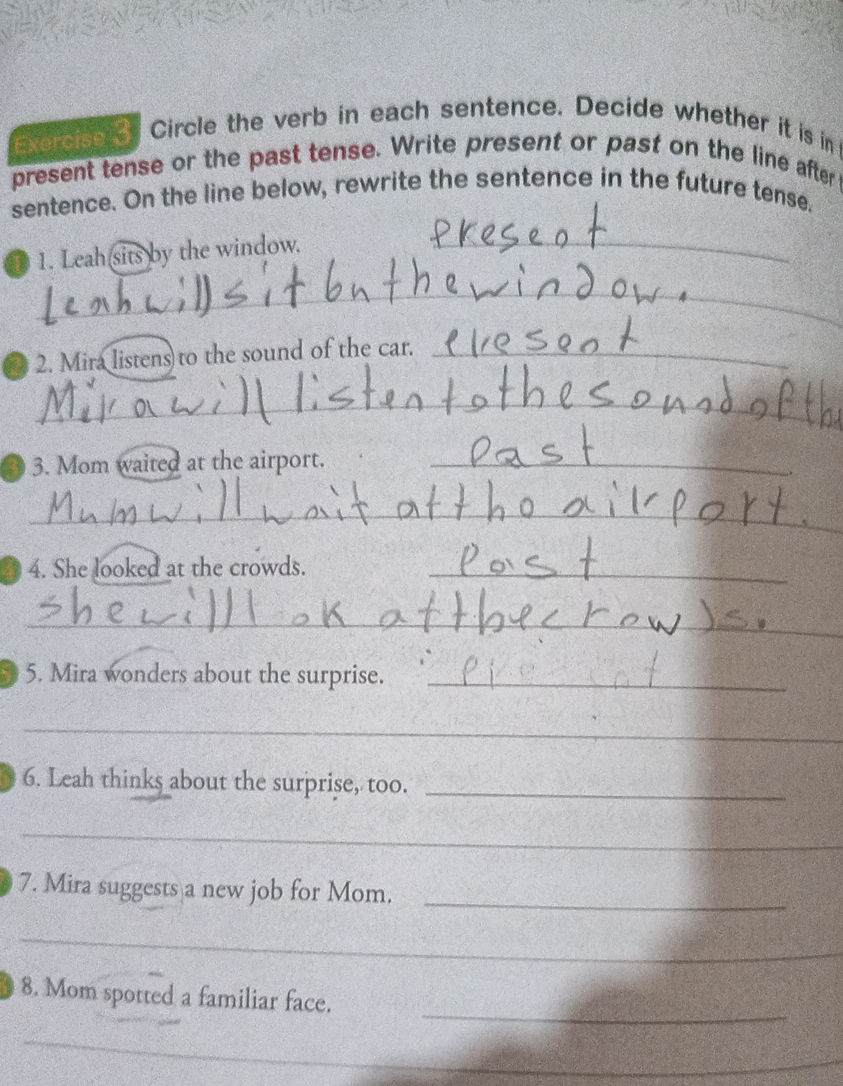 Exercise 3 Circle the verb in each sentence. Decide whether it is in
present tense or the past tense. Write present or past on the line after
sentence. On the line below, rewrite the sentence in the future tense.
1 1. Leah sits by the window. present
Leah will sit by the window.
2 2. Mira listens to the sound of the car. present
Mira will listen to the sound of the
3 3. Mom waited at the airport. Past
Mum will wait at the airport.
4 4. She looked at the crowds. Past
she will look at the crowds.
5 5. Mira wonders about the surprise. present
6 6. Leah thinks about the surprise, too.
7. Mira suggests a new job for Mom.
8 8. Mom spotted a familiar face.